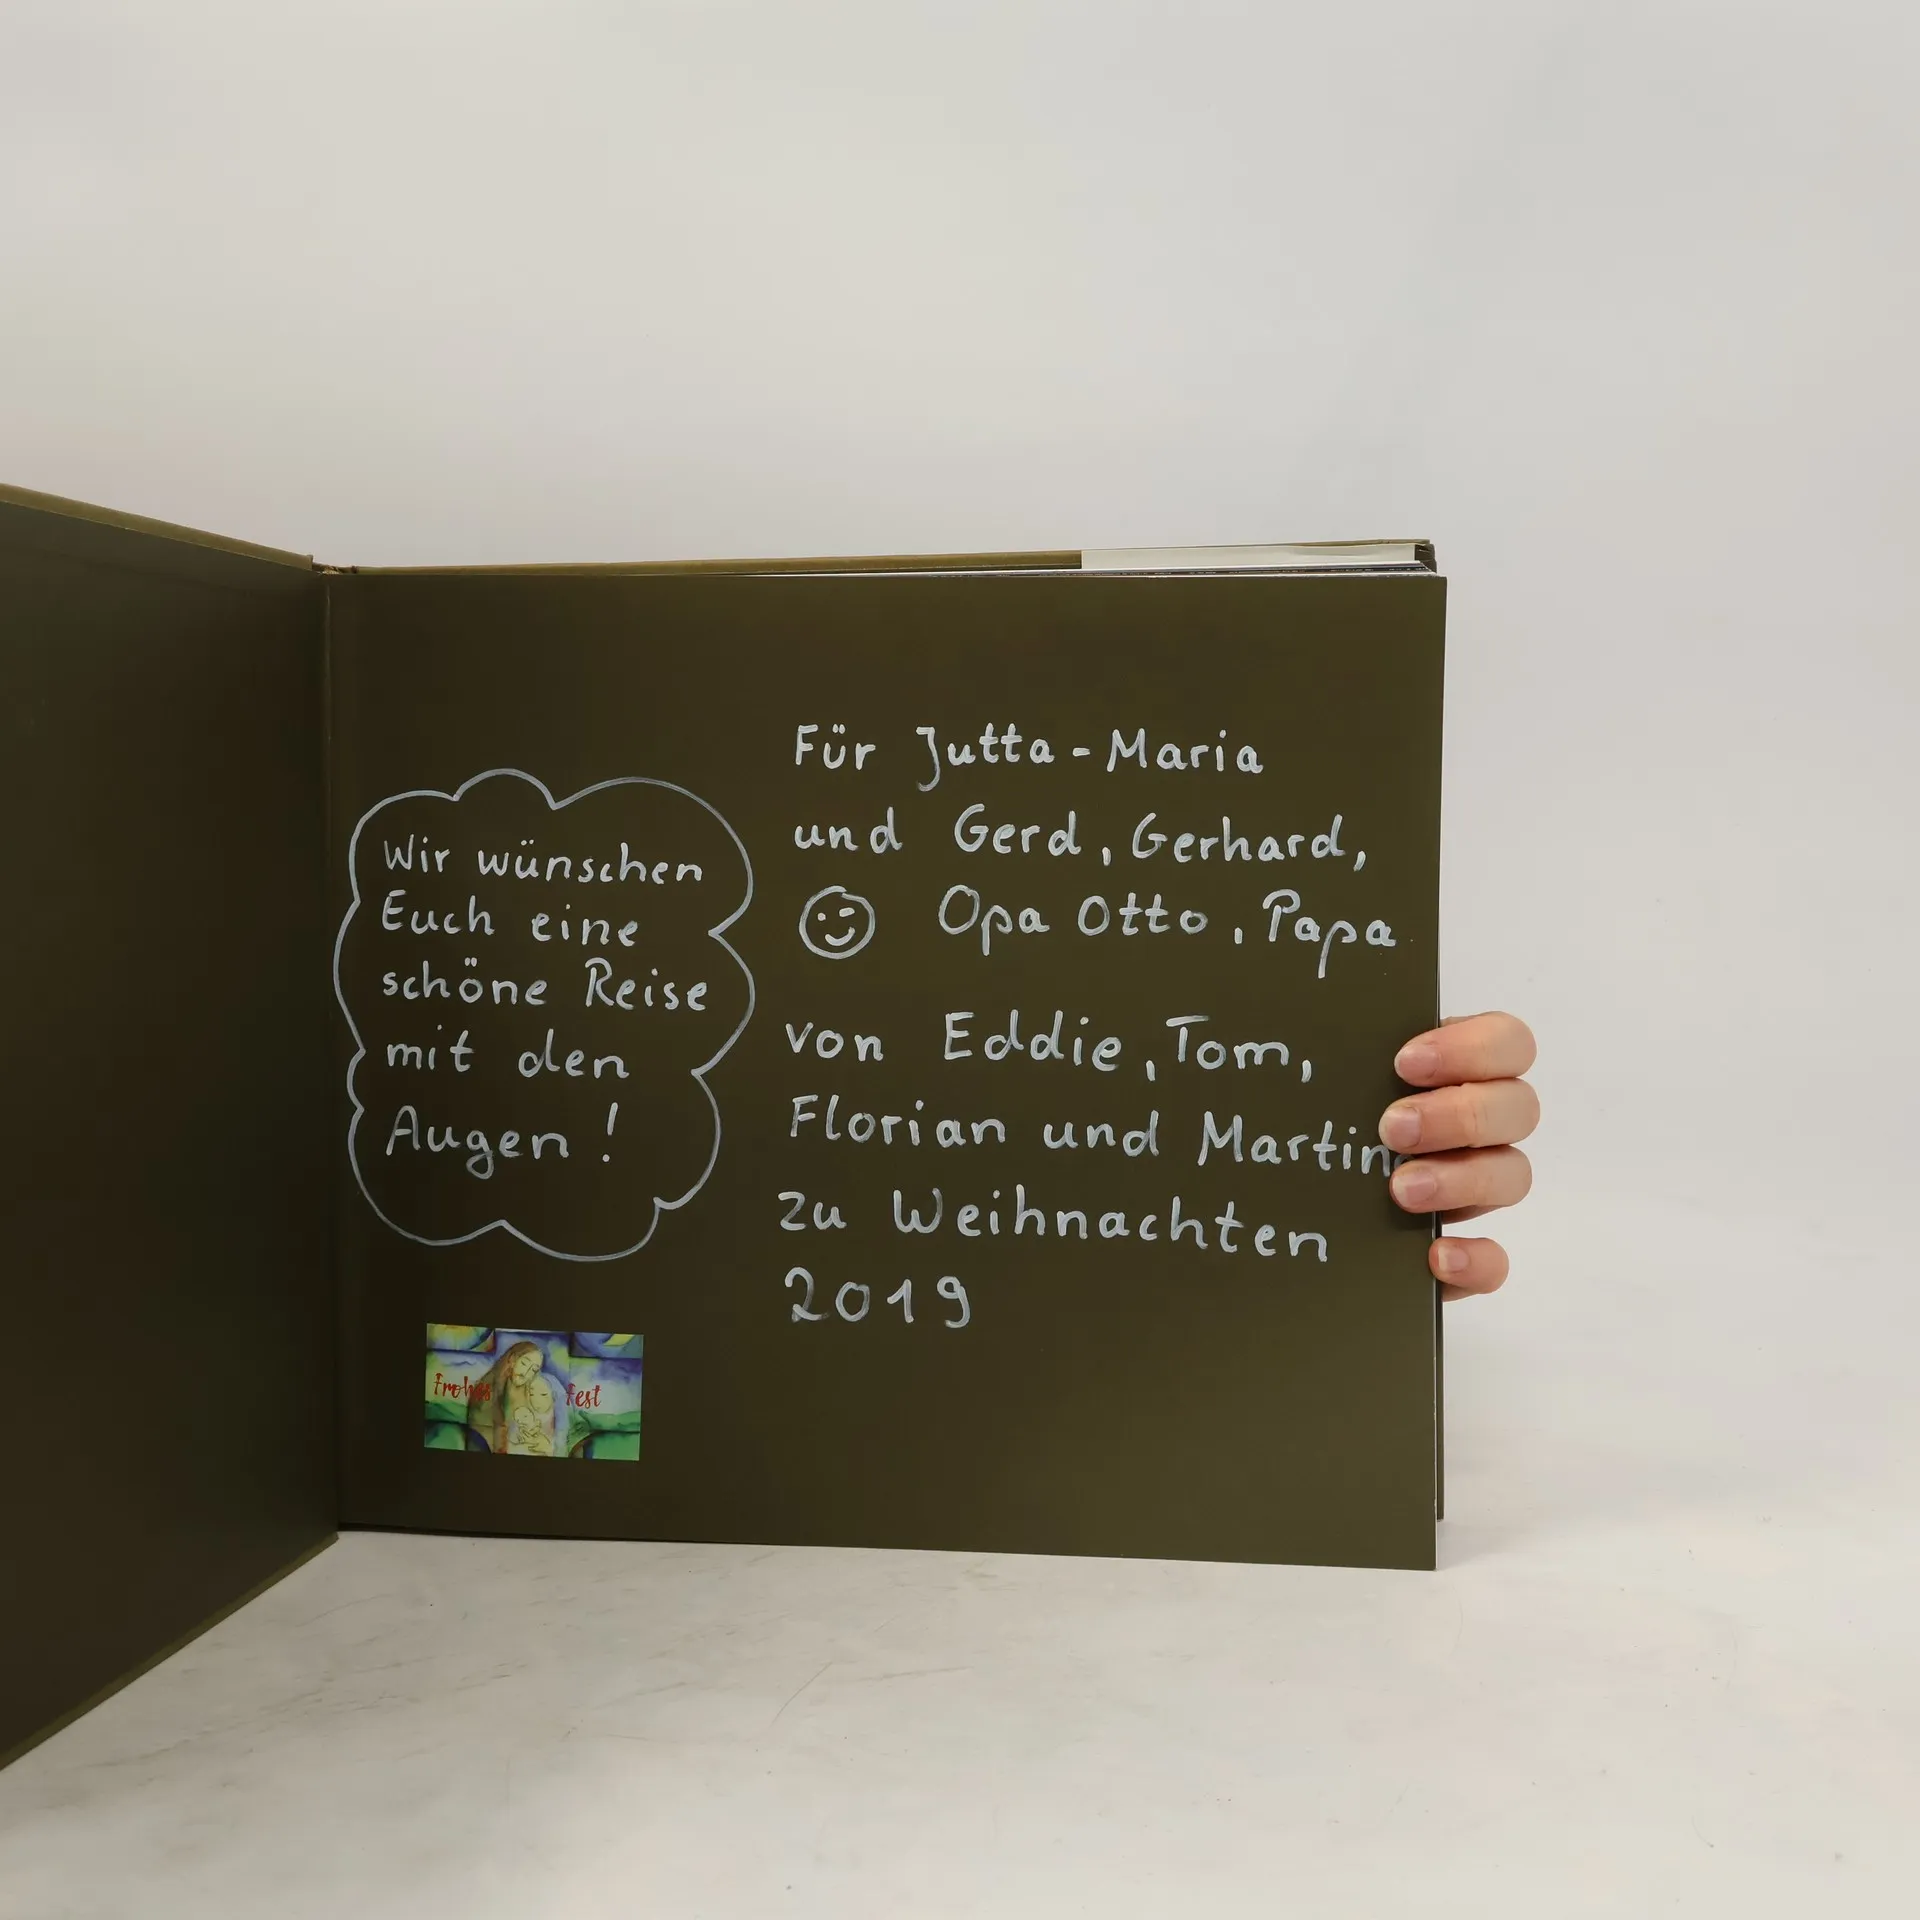 Wir wünschen
Euch eine
schöne Reise
mit den
Augen!
Für Jutta-Maria
und Gerd, Gerhard,
Opa Otto, Papa
von Eddie, Tom,
Florian und
zu Weihnachten
2019
Frohes Fest